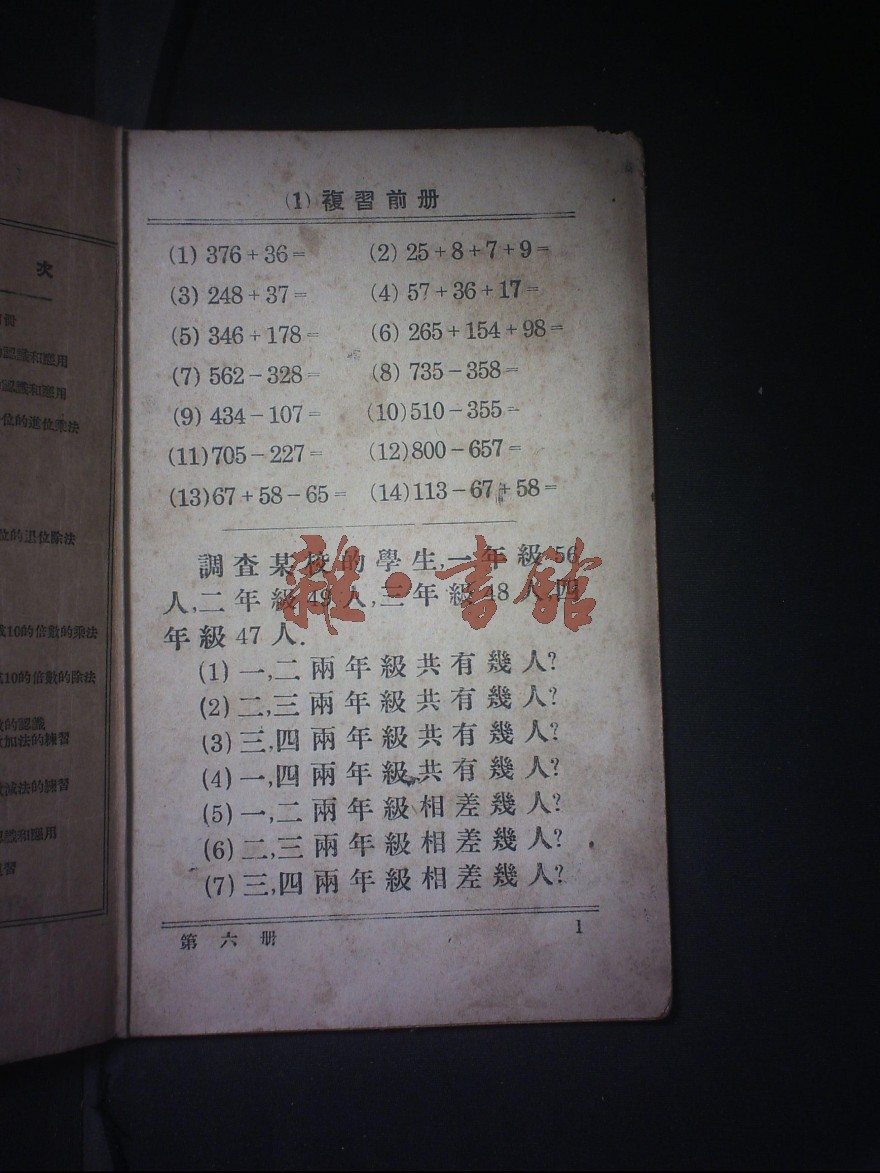 次
認識和應用
認識和應用
位的進位乘法
位的退位除法
或10的倍數的乘法
10的倍數的除法
的認識
加法的練習
減法的練習
和應用
習
(1) 複習前册
(1) 376+36=
(2) 25+8+7+9=
(3) 248+37=
(4) 57+36+17=
(5) 346+178=
(6) 265+154+98=
(7) 562-328=
(8) 735-358=
(9) 434-107=
(10)510-355=
(11)705-227=
(12)800-657=
(13)67+58-65=
(14)113-67+58=
調查某校的學生,一年級56
人,二年級49人,三年級48人,四
年級47人.
(1)一,二兩年級共有幾人?
(2)二,三兩年級共有幾人?
(3)三,四兩年級共有幾人?
(4)一,四兩年級共有幾人?
(5)一,二兩年級相差幾人?
(6)二,三兩年級相差幾人?
(7)三,四兩年級相差幾人?
第六册
1
雜·書館